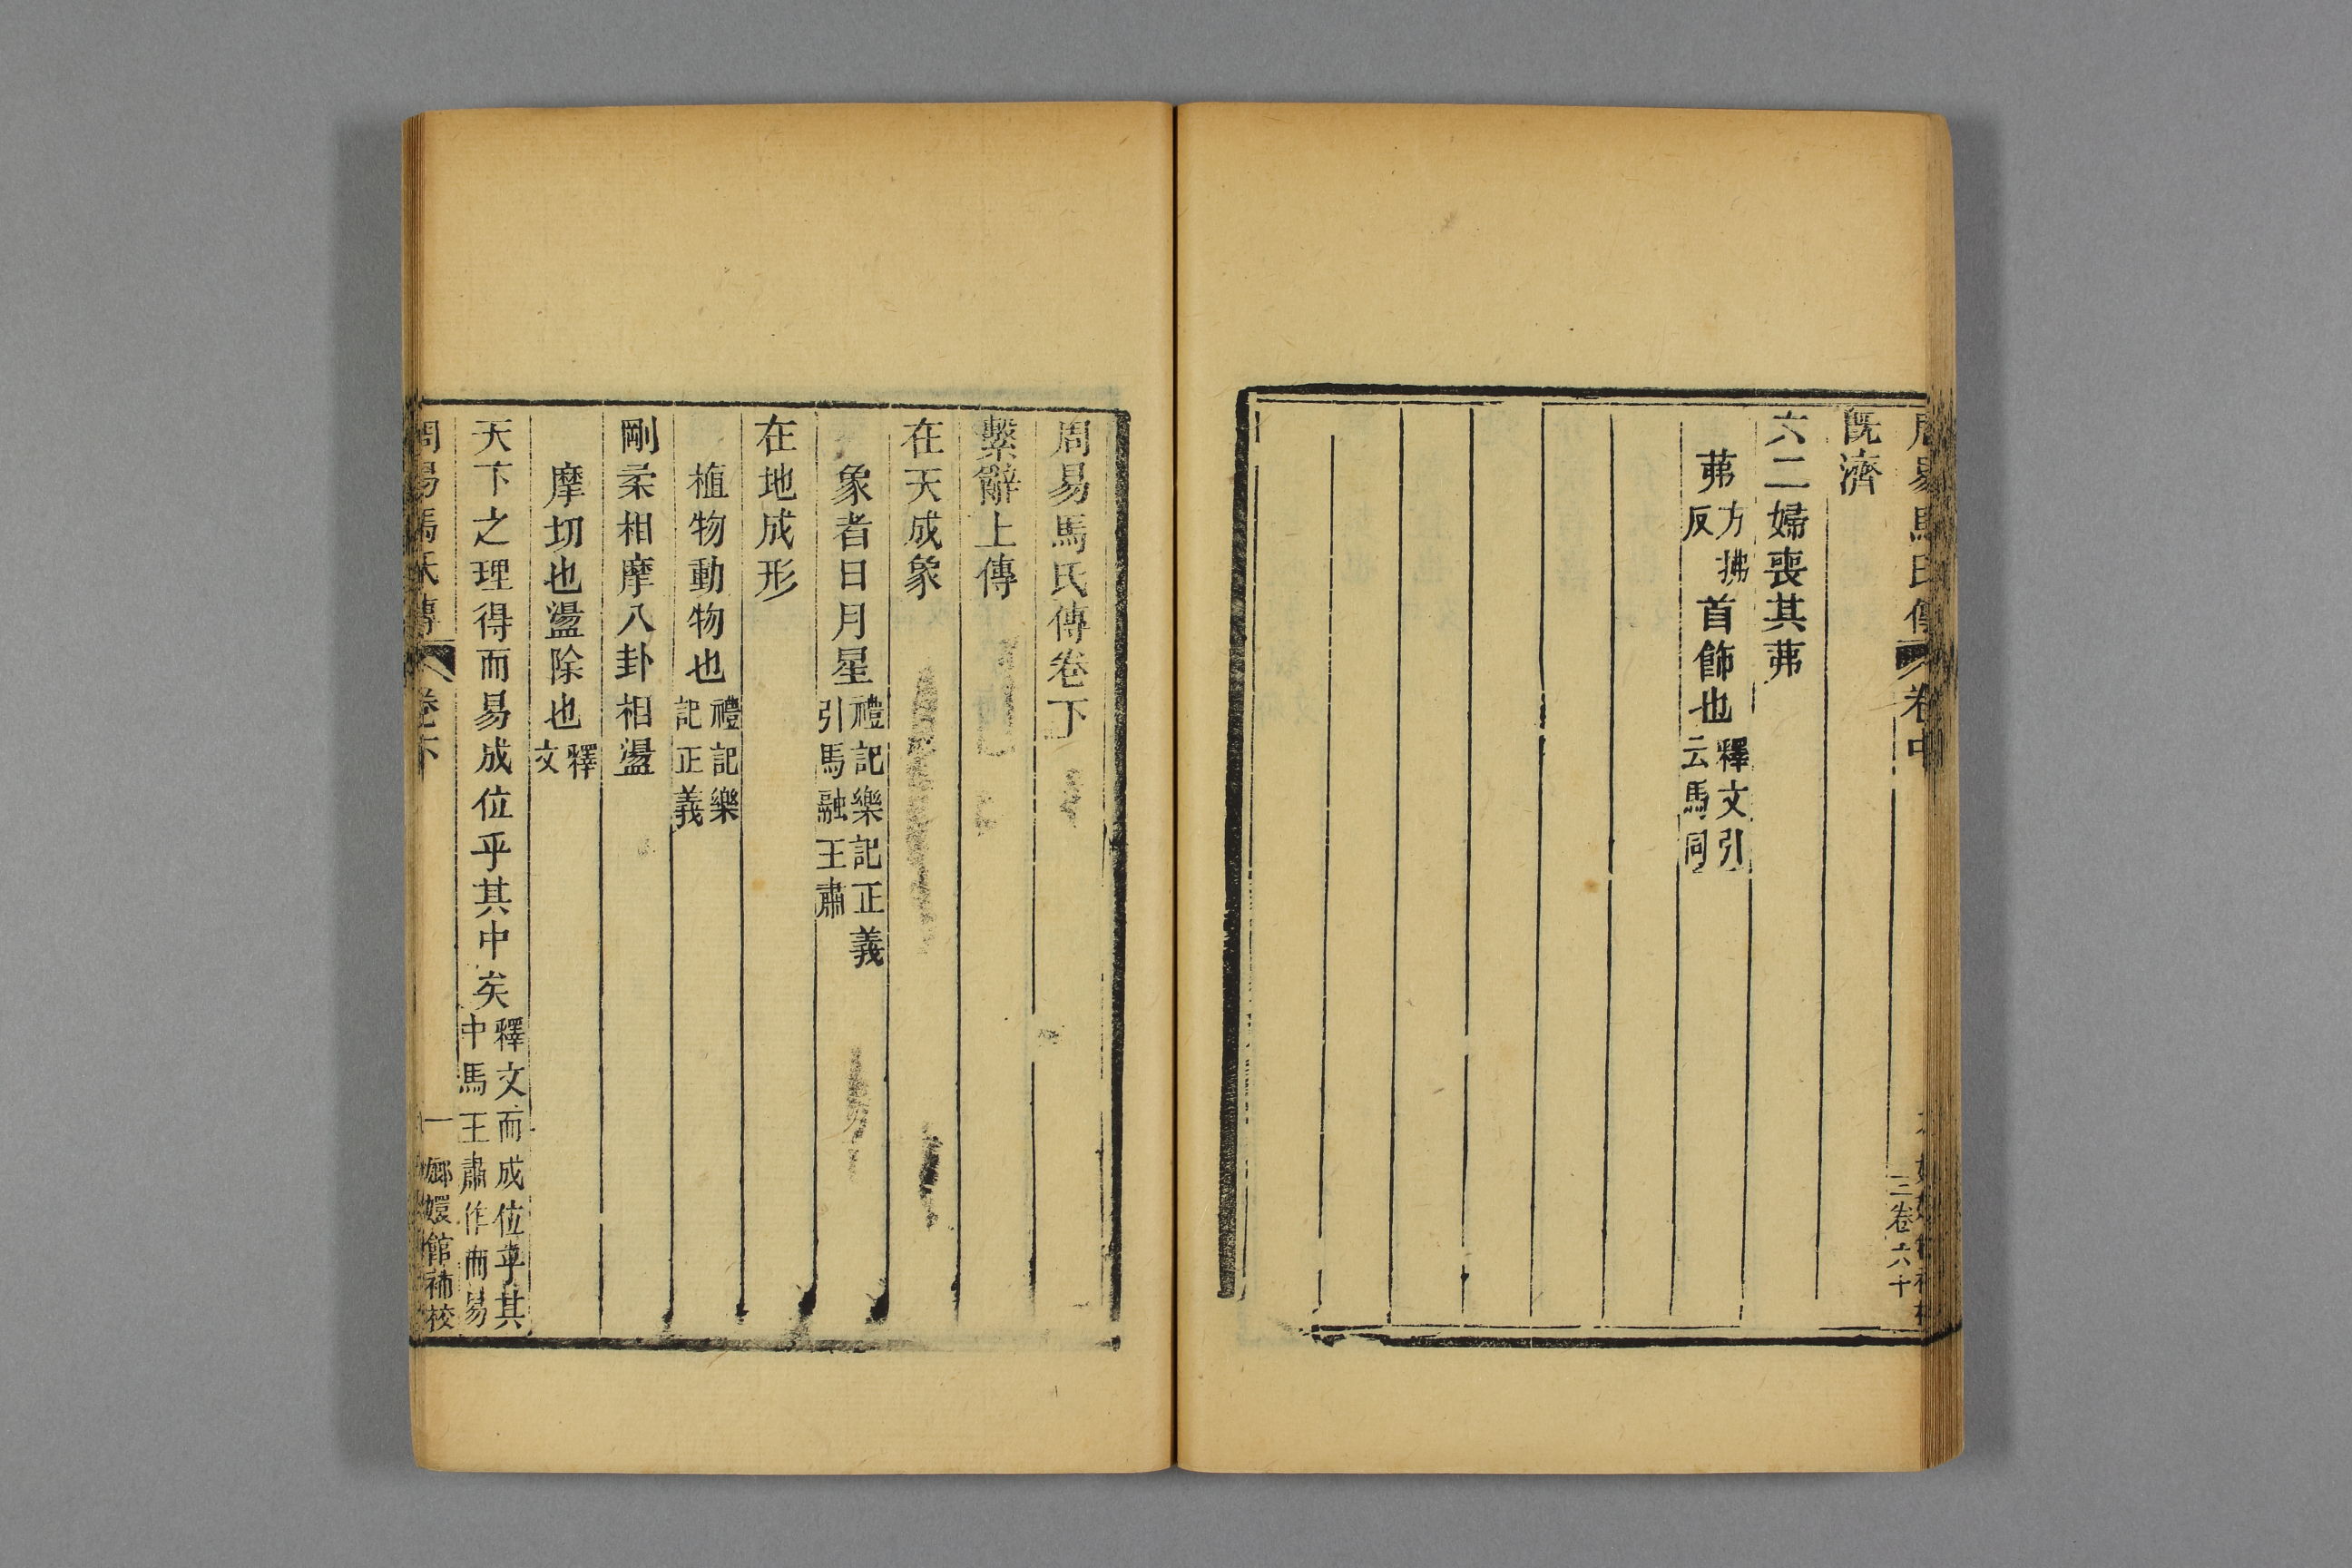 周易馬氏傳 卷中
二卷六十
既濟
六二婦喪其茀
茀方拂反首飾也釋文引云馬同
周易馬氏傳卷下
繫辭上傳
在天成象
象者日月星禮記樂記正義引馬融王肅
在地成形
植物動物也禮記樂記正義
剛柔相摩八卦相盪
摩切也盪除也釋文
天下之理得而易成位乎其中矣釋文而成位乎其中馬王肅作而易
周易馬氏傳 卷下 一 嫏嬛館補校